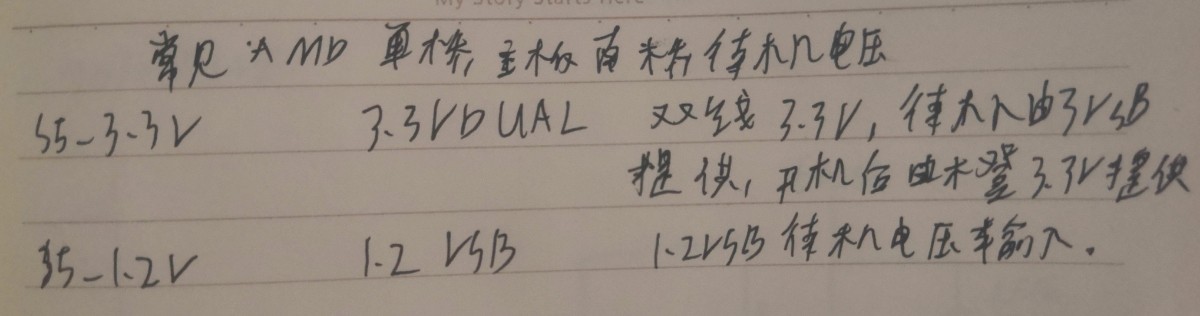 My Story Starts Here
常见AMD 单桥,主板南桥待机电压
S5-3.3V 3.3VDUAL 双线3.3V,待机由3VSB
提供,开机后由木登3.3V提供
S5-1.2V 1.2VSB 1.2VSB待机电压输入.